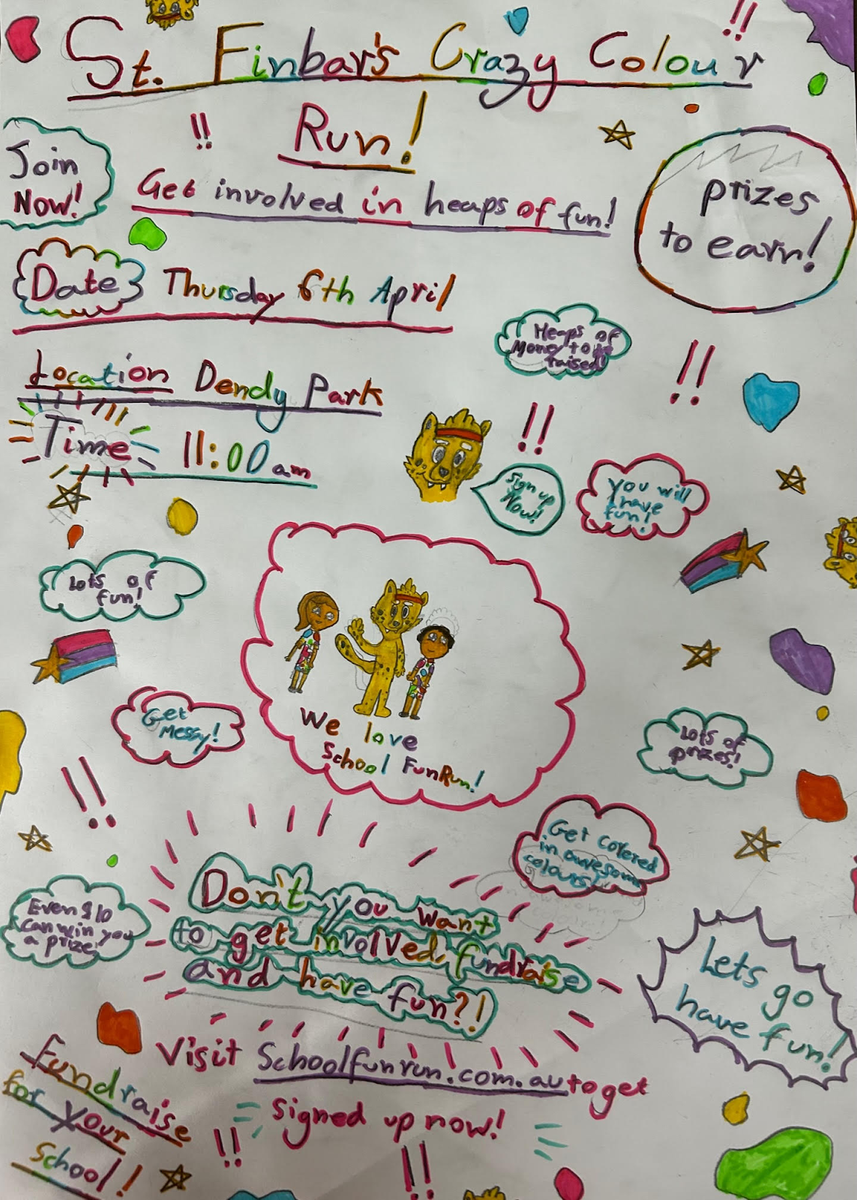 St. Finbar's Crazy Colour
Run!
Join
Now!
Get involved in heaps of fun!
prizes
to earn!
Date Thursday 6th April
Heaps of
Money to be
raised!
Location Dendy Park
Time 11:00 am
Sign up
Now!
you will
have
fun!
Lots of
fun!
We love
School FunRun!
Get
Messy!
Lots of
prizes!
Get covered
in awesome
colours!
Even $10
Can win you
a prize
Don't you want
to get involved, fundraise
and have fun?!
Lets go
have fun!
Visit Schoolfunrun.com.au to get
signed up now!
Fundraise
for your
School!